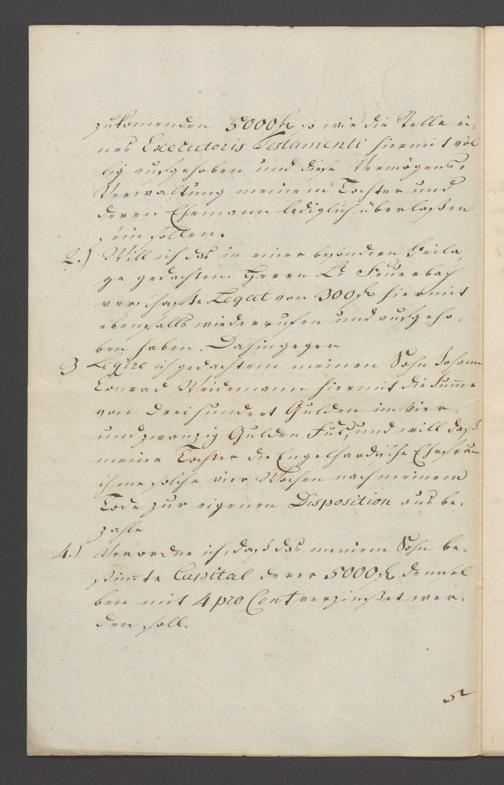 zukomenden 5000 fl so wie die Stelle ei-
nes Executoris Testamenti hiermit völ-
lig aufgehoben und diese Vermögens-
Verwaltung meinem Tochter und
deren Ehemann lediglich überlassen
seyn sollen.
2.) Will ich das in einer besondern Beila-
ge gedachtem Herrn Dr Feuerbach
vermachte Legat von 300 fl hiermit
ebenfalls wiederrufen und aufgeho-
ben haben. Dahingegen
3 Legire ich gedachtem meinen Sohn Johann
Conrad Weidemann hiermit die Summe
von Dreihundert Gulden im vier
und zwanzig Gulden Fuß, und will daß
meine Tochter die Engelhardische Ehefrau
ihme solche vier Wochen nach meinem
Tode zur eigenen Disposition aus be-
zahle
4.) Verordne ich, daß das meinem Sohn be-
stimmte Capital derer 5000 fl demsel-
ben mit 4 pro Cent verzinßet wer-
den soll.